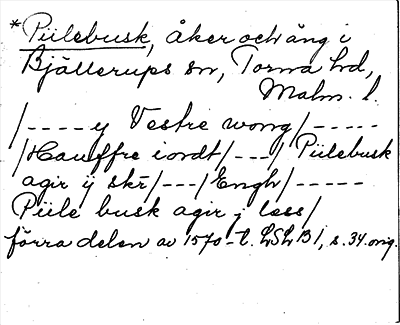 *Piilebusk, åker och äng i
Bjällerups sn, Torna hd,
Malm. l.
/---- y Vestre wong/-----
/Hauffre iordt/---/ Piilebusk
agir ij skr/---/Engh/-----
Piile busk agir j less/
förra delen av 1570-t. LSLB 1, s. 34. orig.